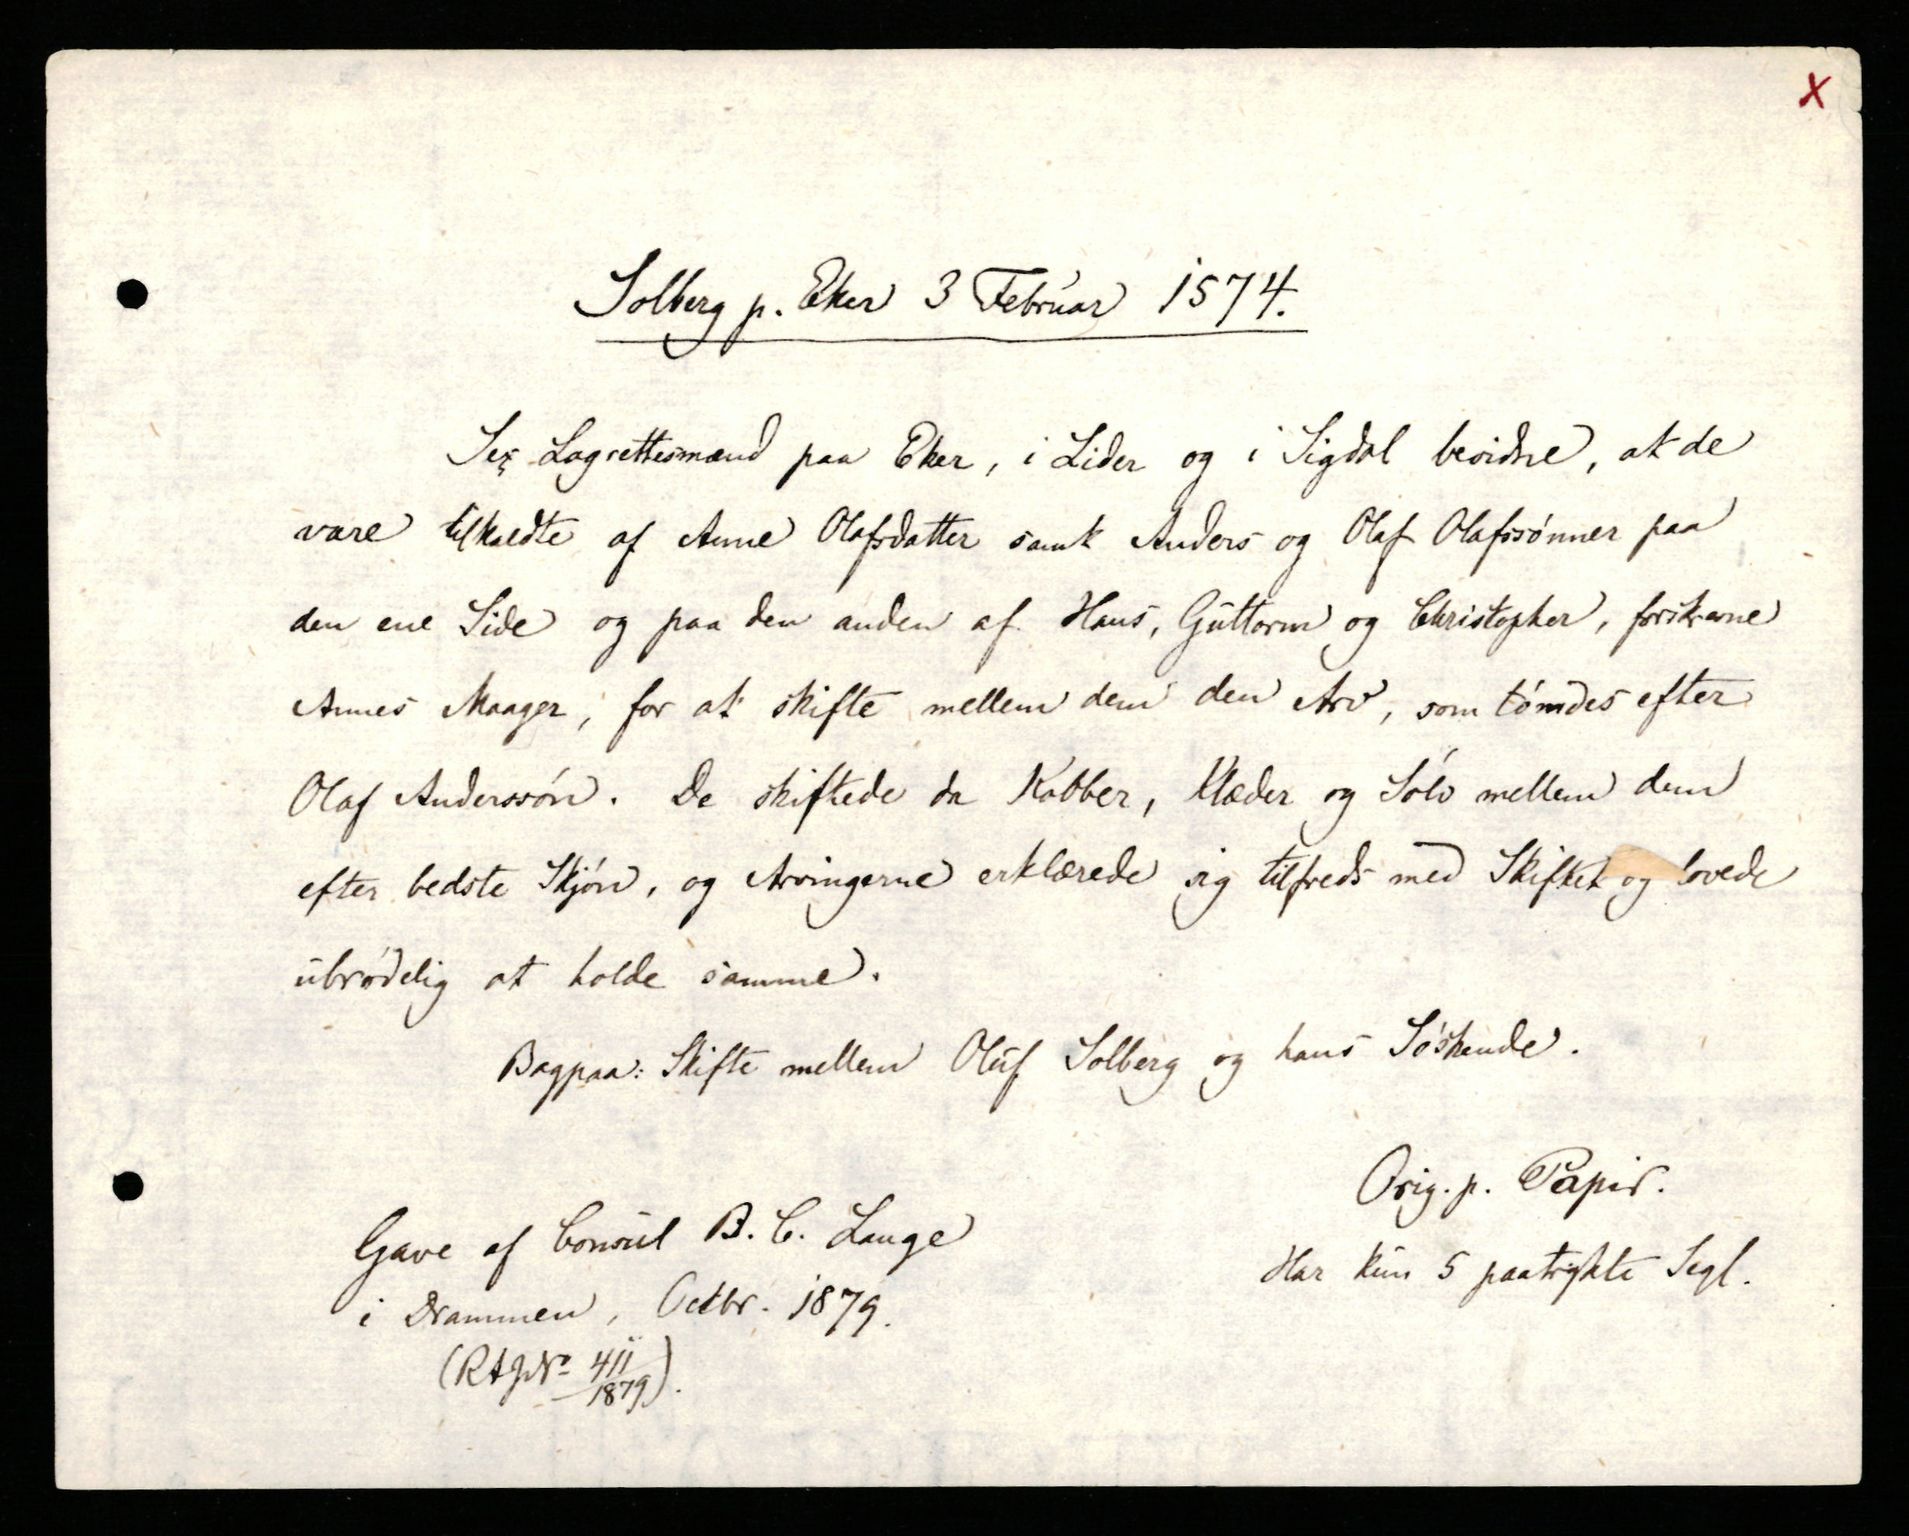 X
Solberg p. Eker 3 Februar 1574.
Sex Lagrettesmænd paa Eker, i Lider og i Sigdal bevidne, at de
vare tilkaldte af Anne Olafsdatter samt Anders og Olaf Olafssønner paa
den ene Side og paa den anden af Hans, Guttorm og Christopher, forskrevne
Annes Maager, for at skifte mellem dem den Arv, som tómdes efter
Olaf Anderssøn. De skiftede da Kobber, Klæder og Sólv mellem dem
efter bedste Skjøn, og Arvingerne erklærede sig tilfreds med Skiftet og lovede
ubrødelig at holde samme.
Bagpaa: Skifte mellem Oluf Solberg og hans Søskende.
Orig. p. Papir.
Har kun 5 paatrykte Segl.
Gave af Consul B. C. Lange
i Drammen, Octbr. 1879.
(RAJNo 411/1879).